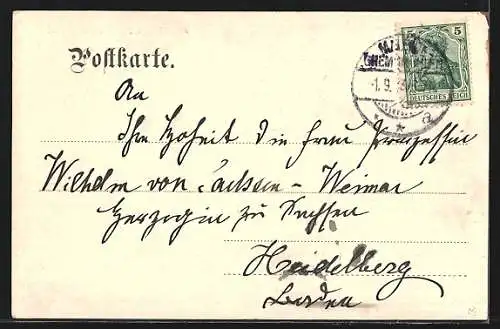 Postkarte.
5 5
DEUTSCHES REICH
-1.9.
a
An
Ihre Hoheit die Frau Prinzessin
Wilhelm von Sachsen-Weimar
Herzogin zu Sachsen
Heidelberg
Baden